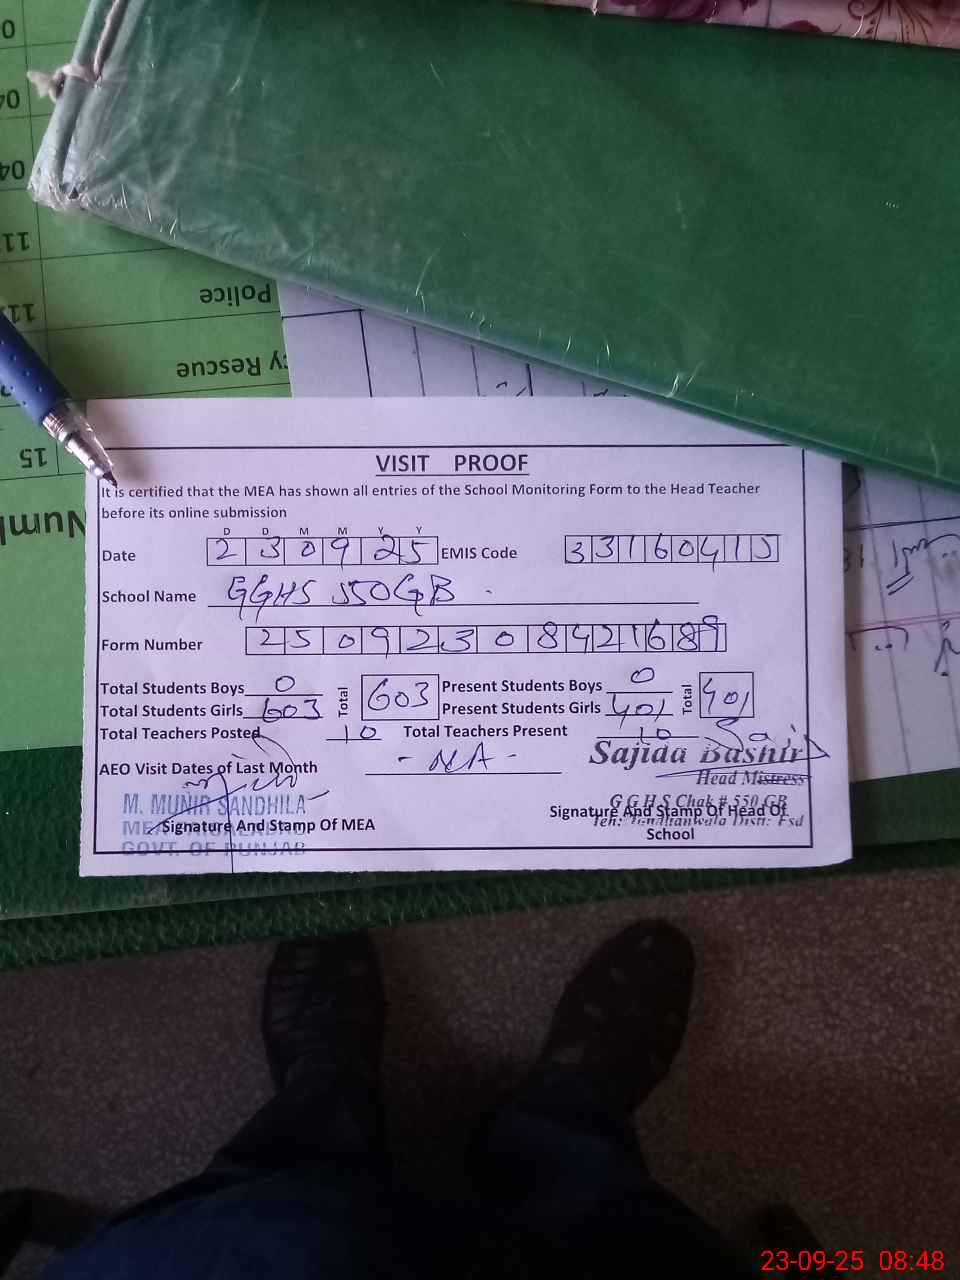 0
04
04
11
11
Police
cy Rescue
15
Numb
VISIT PROOF
It is certified that the MEA has shown all entries of the School Monitoring Form to the Head Teacher
before its online submission
D D M M Y Y
Date 230925 EMIS Code 33160415
School Name GGHS 550GB
Form Number 25092308421689
Total Students Boys 0 Total 603 Present Students Boys 0 Total 401
Total Students Girls 603 Present Students Girls 401
Total Teachers Posted 10 Total Teachers Present 10
AEO Visit Dates of Last Month - NA -
Sajida Bashir
Head Mistress
M. MUNIR SANDHILA
G G H S Chak # 550 GB
Signature And Stamp Of MEA
Signature And Stamp Of Head Of
Teh: Tandlianwala Distt: Fsd
School
GOVT. OF PUNJAB
23-09-25 08:48